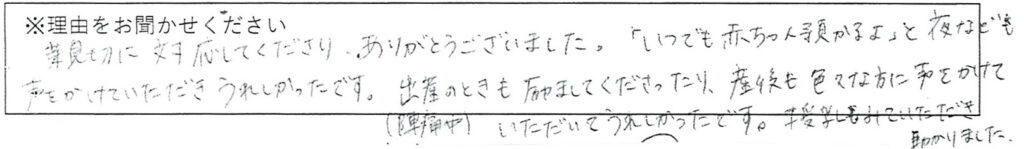 ※理由をお聞かせください
親切に対応してくださり、ありがとうございました。「いつでも赤ちゃん預かるよ」と夜なども
声をかけていただきうれしかったです。出産のときも励ましてくださったり、産後も色々な方に声をかけて
(陣痛中) いただいてうれしかったです。授乳もみていただき
助かりました。